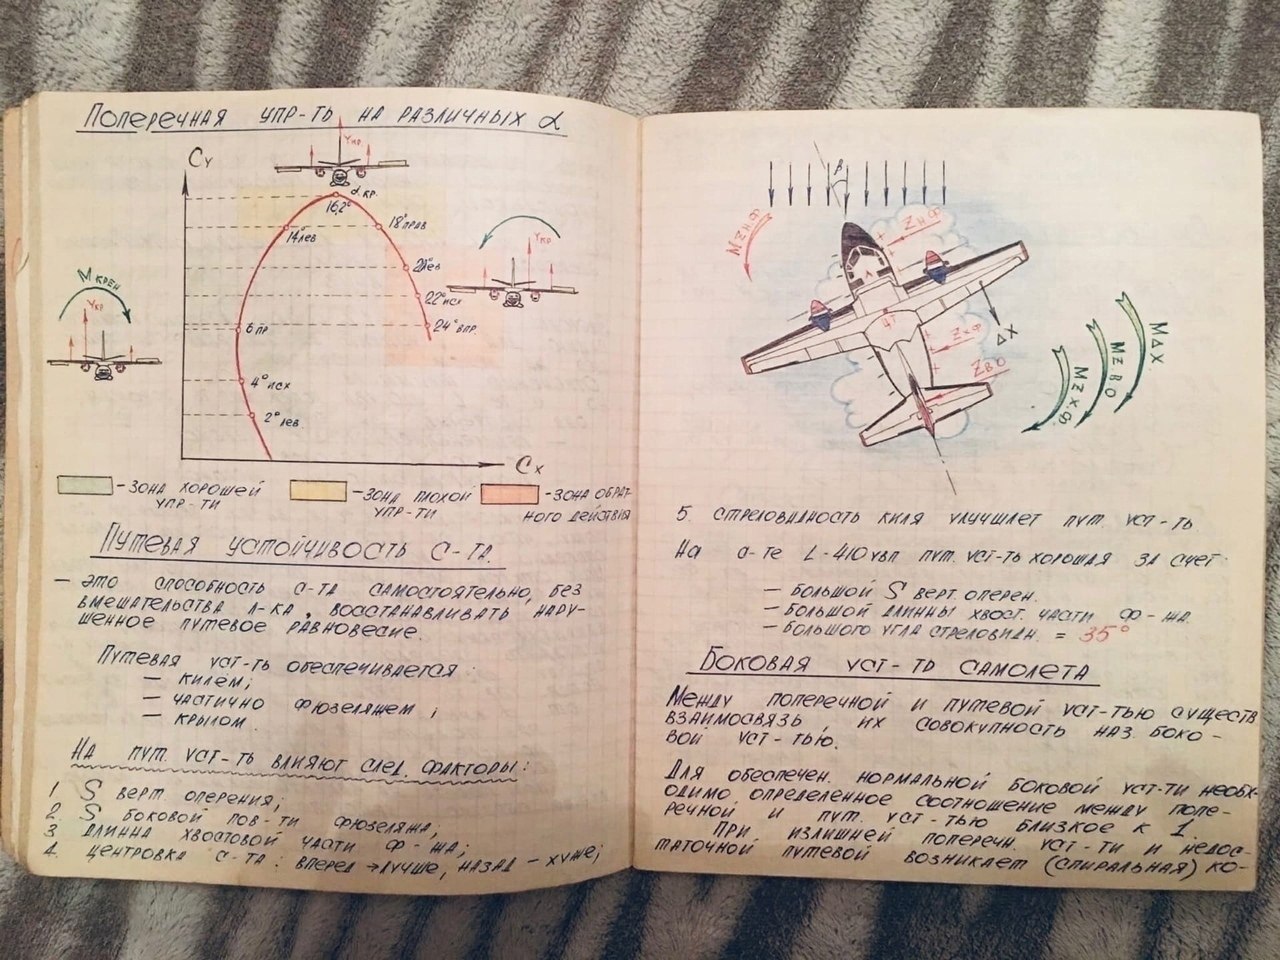 Поперечная упр-ть на различных α
Cу
Yкр
α кр.
16,2°
14° лев
18° прав
Yкр
М крен
Yкр
20° лев
22° исх
24° впр
6 пр
4° исх
2° лев
Cх
- зона хорошей упр-ти
- зона плохой упр-ти
- зона обрат-
ного действия
Путевая устойчивость с-та.
– это способность с-та самостоятельно, без
вмешательства л-ка, восстанавливать нару-
шенное путевое равновесие.
Путевая уст-ть обеспечивается:
– килем;
– частично фюзеляжем;
– крылом.
На пут. уст-ть влияют след. факторы:
1 S верт. оперения;
2. S боковой пов-ти фюзеляжа;
3 длинна хвостовой части ф-жа;
4. центровка с-та: вперед → лучше, назад – хуже;
β
MZн.ф
Zн.ф
ΔX
Zх.ф
Zво
MΔX.
MZ ВО
MZ х.ф.
5. стреловидность киля улучшает пут. уст-ть
На с-те L-410увп пут. уст-ть хорошая за счет:
– большой S верт. оперен.
– большой длинны хвост. части ф-жа.
– большого угла стреловидн. = 35°
Боковая уст-ть самолета
Между поперечной и путевой уст-тью существ
взаимосвязь, их совокупность наз. боко-
вой уст-тью.
Для обеспечен. нормальной боковой уст-ти необх-
одимо определенное соотношение между попе-
речной и пут. уст-тью близкое к 1.
При излишней поперечн. уст-ти и недос-
таточной путевой возникает (спиральная) ко-